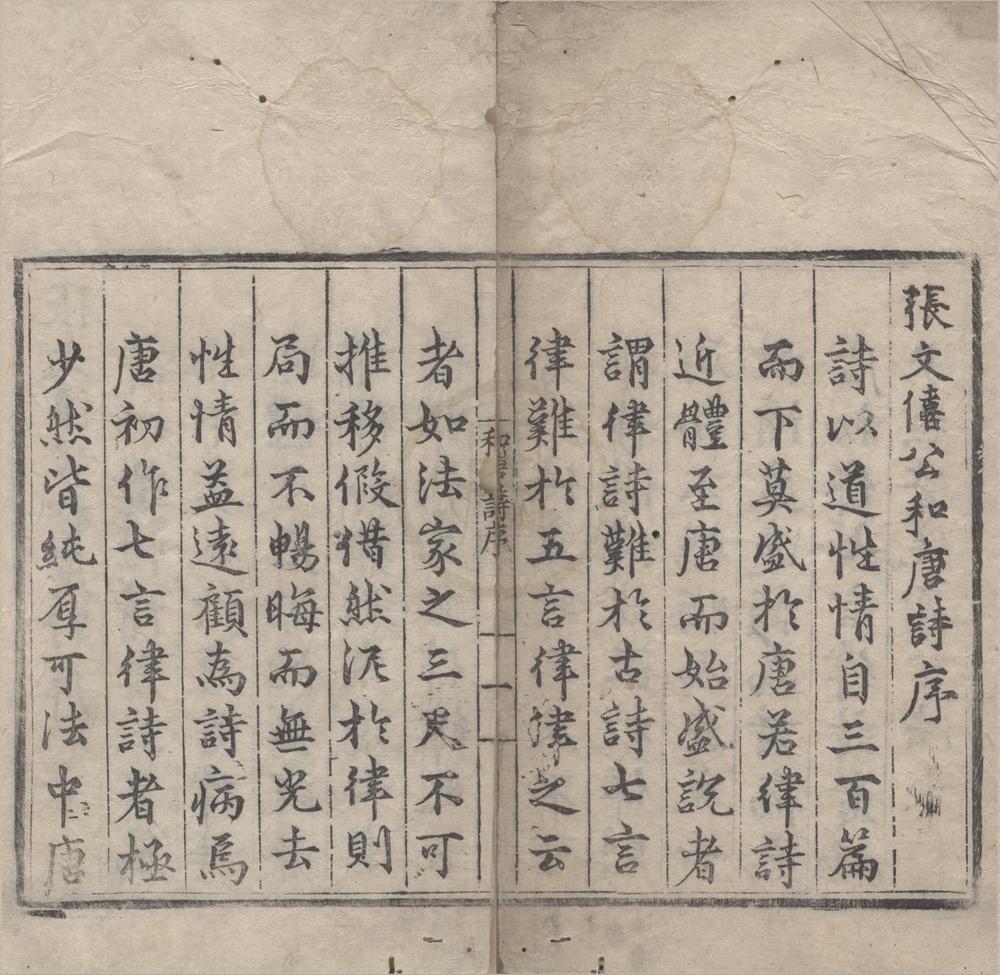 張文僖公和唐詩序
詩以道性情自三百篇
而下莫盛於唐若律詩
近體至唐而始盛説者
謂律詩難於古詩七言
律難於五言律律之云
和唐詩序
一
者如法家之三尺不可
推移假借然泥於律則
局而不暢晦而無光去
性情益遠顧為詩病焉
唐初作七言律詩者極
少然皆純厚可法中唐